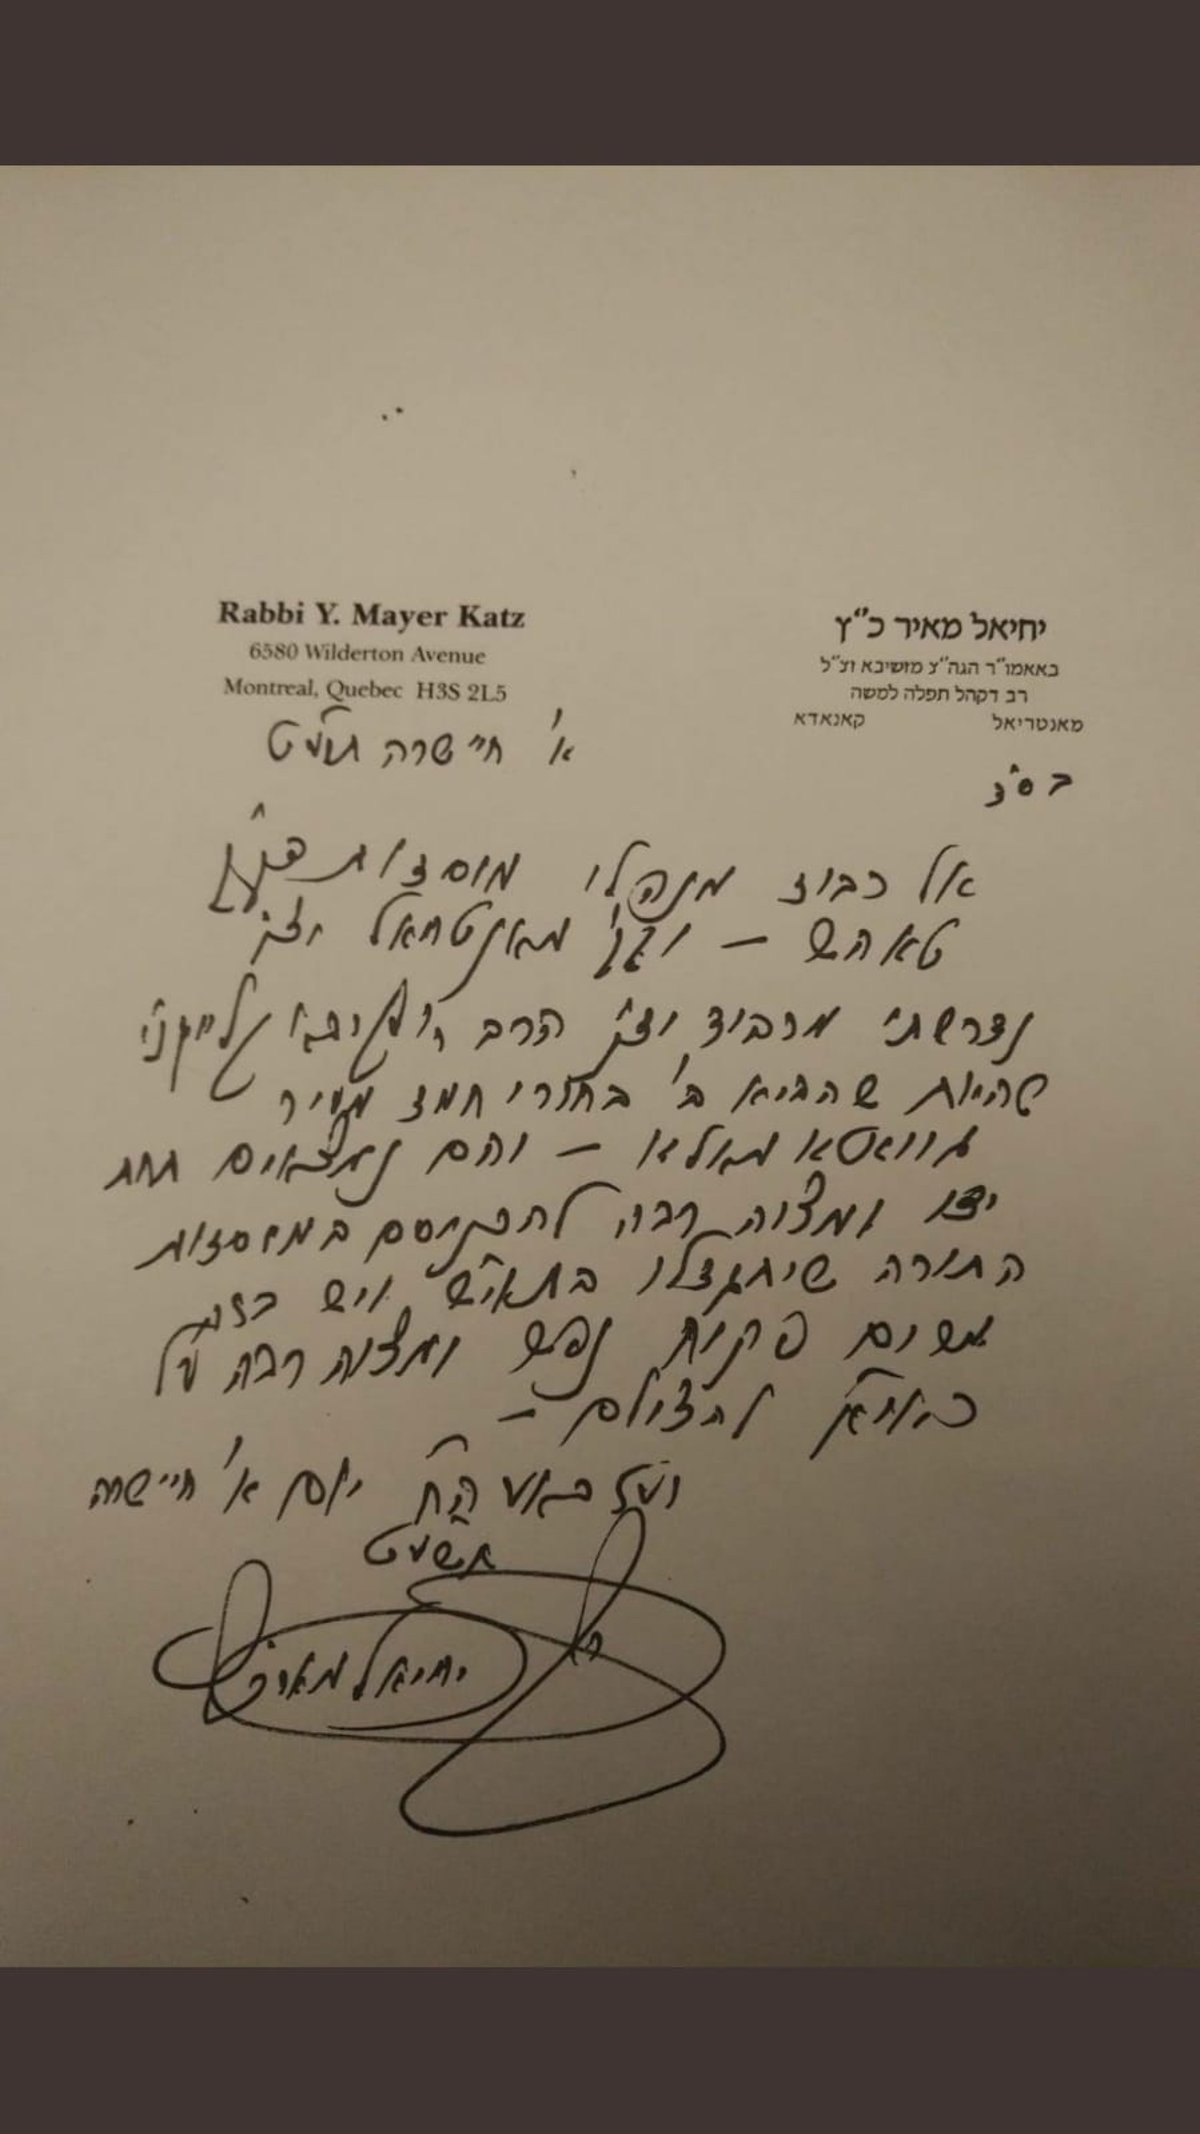 Rabbi Y. Mayer Katz
6580 Wilderton Avenue
Montreal, Quebec H3S 2L5
יחיאל מאיר כ"ץ
באאמו"ר הגה"צ מזשיבא זצ"ל
רב דקהל תפלה למשה
מאנטריאל קאנאדא
א' חיי שרה תשע"ט
בס"ד
אל כבוד מנהלי מוסדות
טאהש – מאנטריאל יצ"ו
נדרשתי מכבוד ידי הרב
היות שהביא ב' בחורי חמד מעיר
גוואטאמאלא – והם נמצאים תחת
ידו ומצוה רבה להכניסם במוסדות
התורה שיתגדלו בתוי"ש ויש בזה
משום פקוח נפש ומצוה רבה על
כאו"א להצילם –
וע"ז באעה"ח יום א' חיי שרה
תשע"ט
יחיאל מאיר